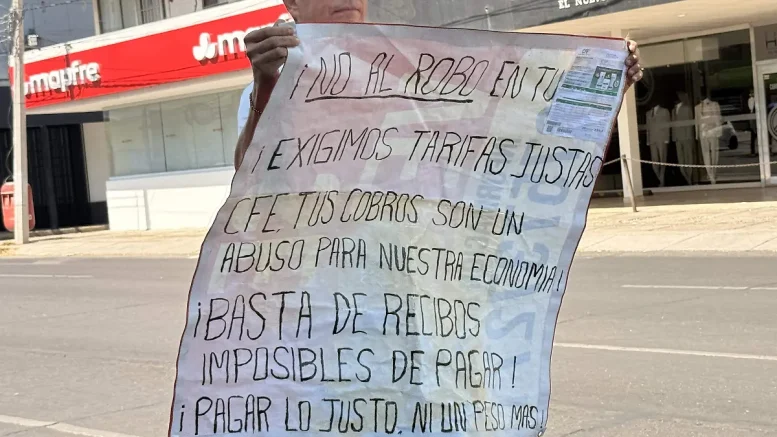 mapfre
m
EL NUEV
¡NO AL ROBO EN TU
¡EXIGIMOS TARIFAS JUSTAS
CFE, TUS COBROS SON UN
ABUSO PARA NUESTRA ECONOMIA!
¡BASTA DE RECIBOS
IMPOSIBLES DE PAGAR!
¡PAGAR LO JUSTO, NI UN PESO MAS!